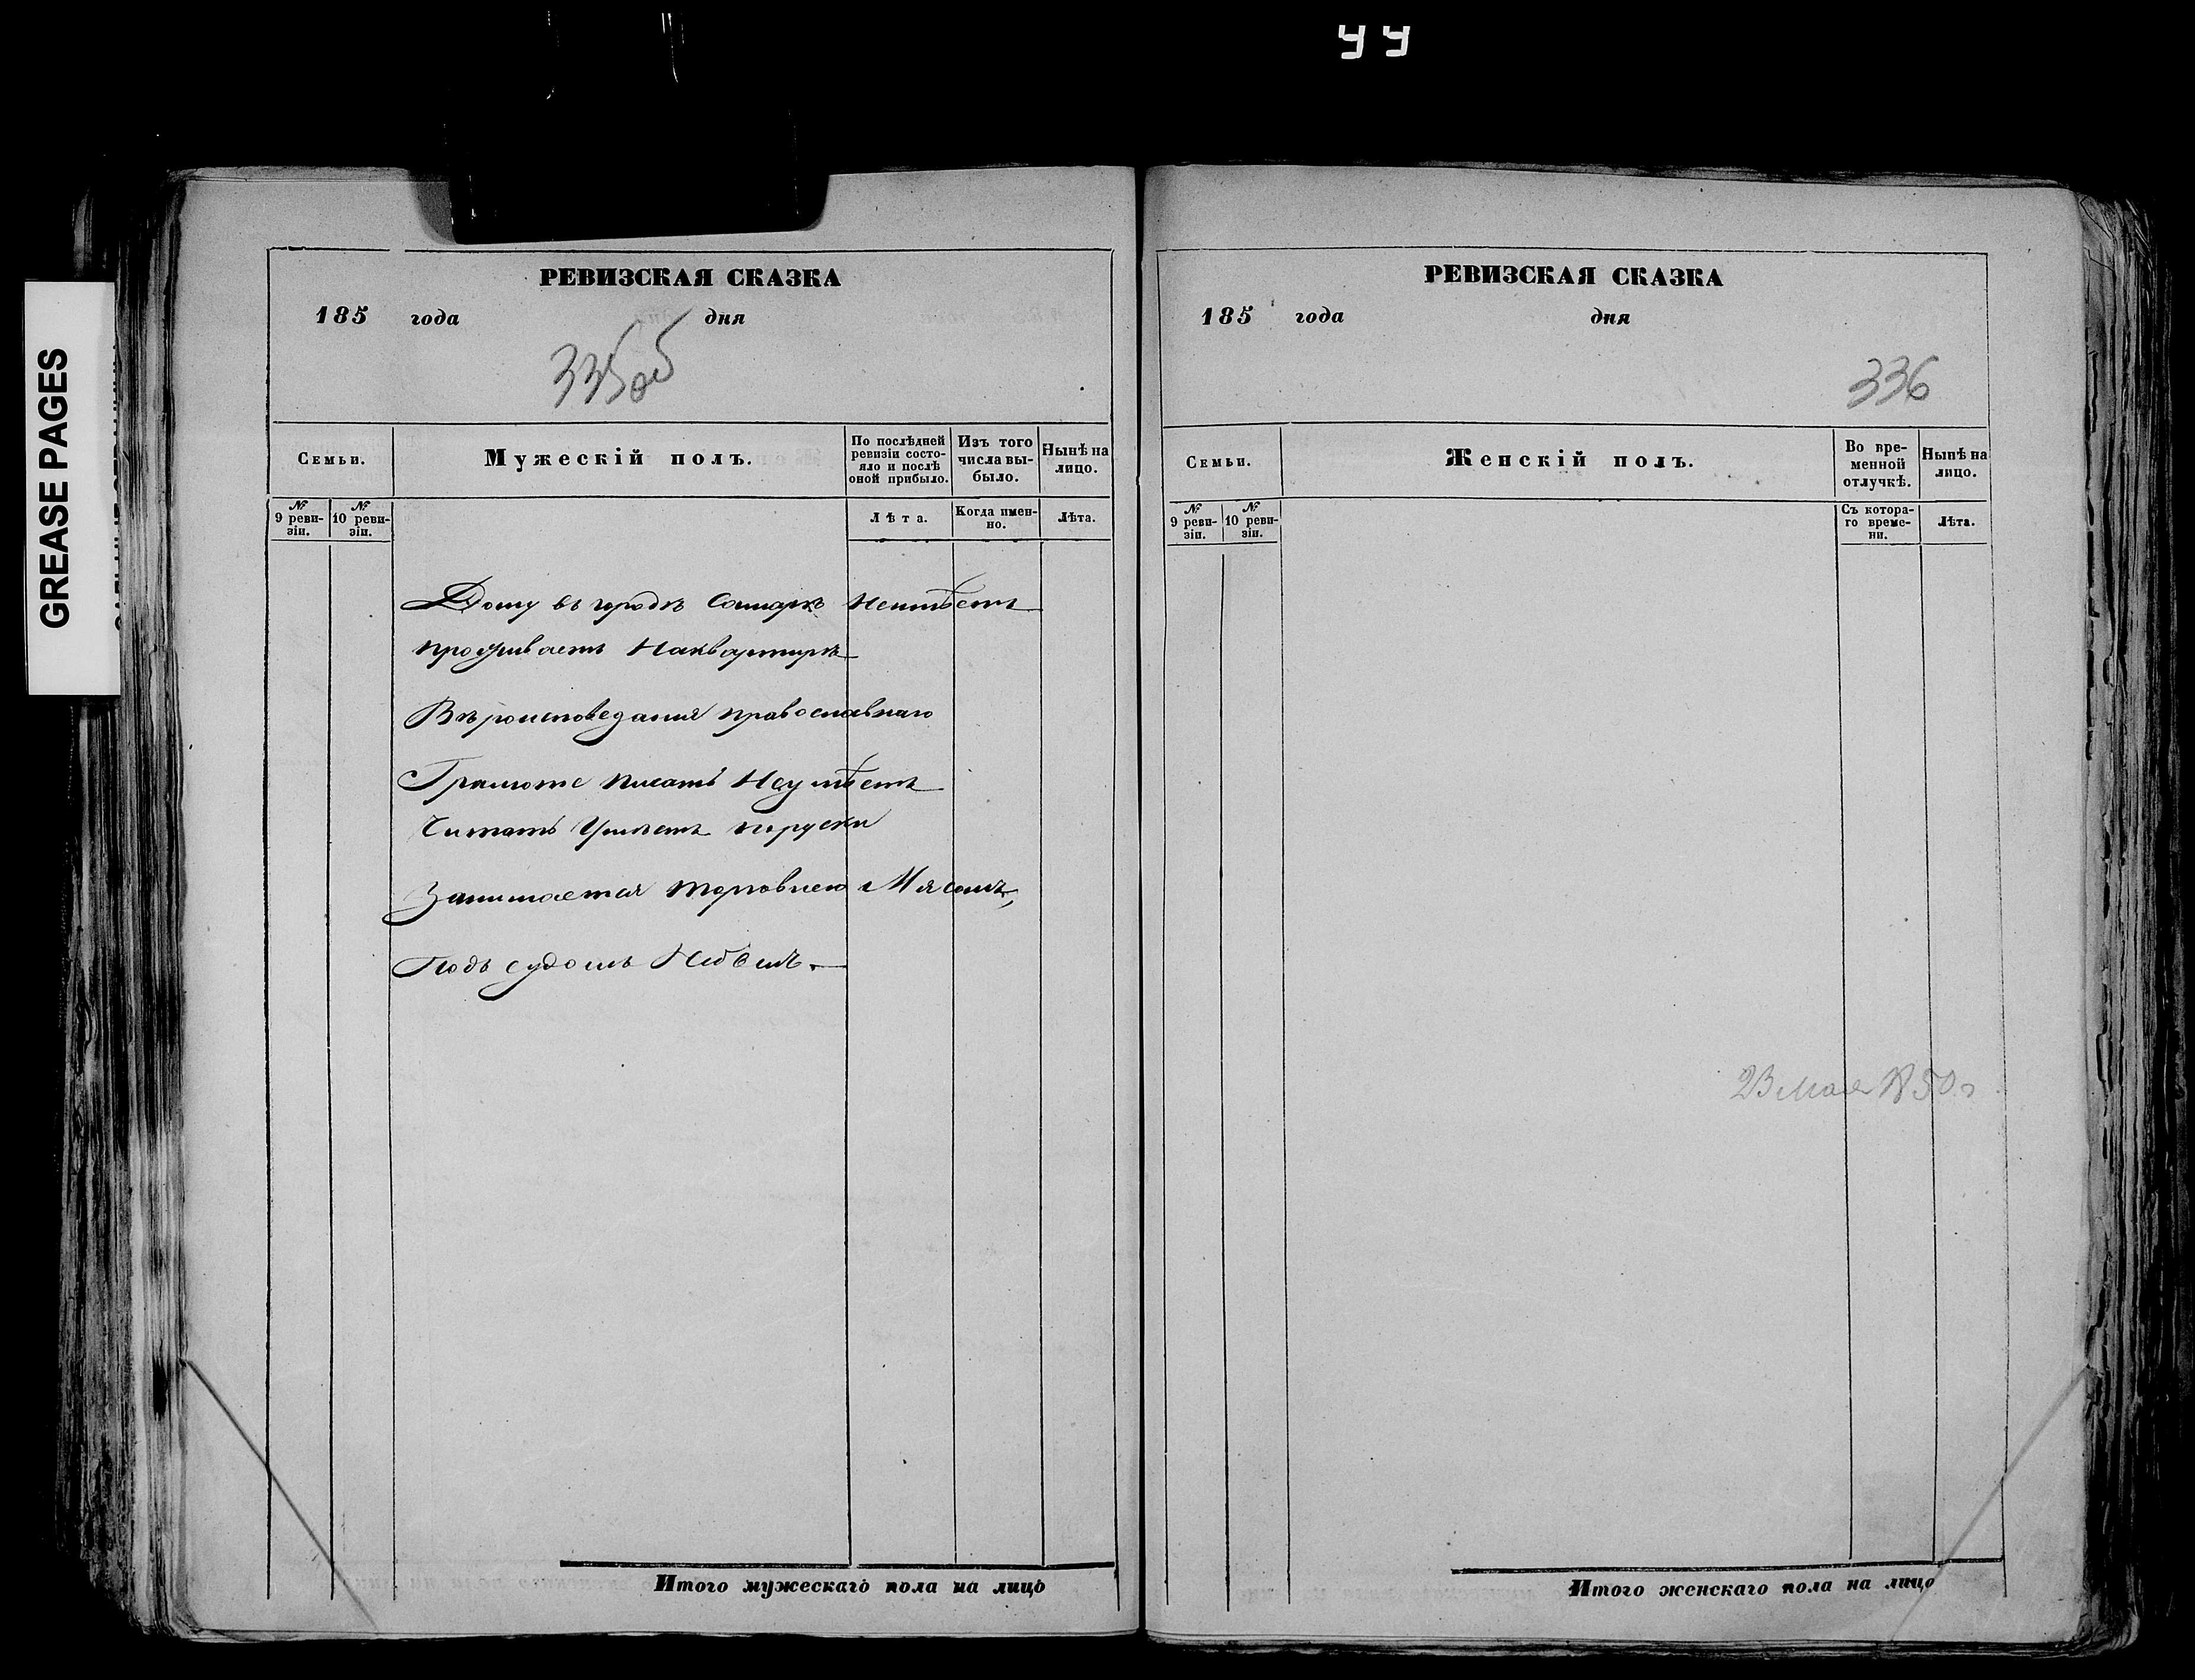 GREASE PAGES
РЕВИЗСКАЯ СКАЗКА
185 года дня
335об
Семьи.
Мужескій полъ.
По послѣдней ревизіи состояло и послѣ оной прибыло.
Изъ того числа выбыло.
Нынѣ на лицо.
№ 9 ревизіи.
№ 10 ревизіи.
Лѣта.
Когда именно.
Лѣта.
Дому въ городѣ Самарѣ неимѣетъ
проживаетъ Наквартирѣ
Вѣроисповеданія православнаго
Грамоте писать Неумѣетъ
Читать Умѣетъ поруски
Занимается торговлею Мясомъ,
Подъ судомъ Небылъ.
Итого мужескаго пола на лицо
РЕВИЗСКАЯ СКАЗКА
185 года дня
336
Семьи.
Женскій полъ.
Во временной отлучкѣ.
Нынѣ на лицо.
№ 9 ревизіи.
№ 10 ревизіи.
Съ котораго времени.
Лѣта.
23 мая
Итого женскаго пола на лицо